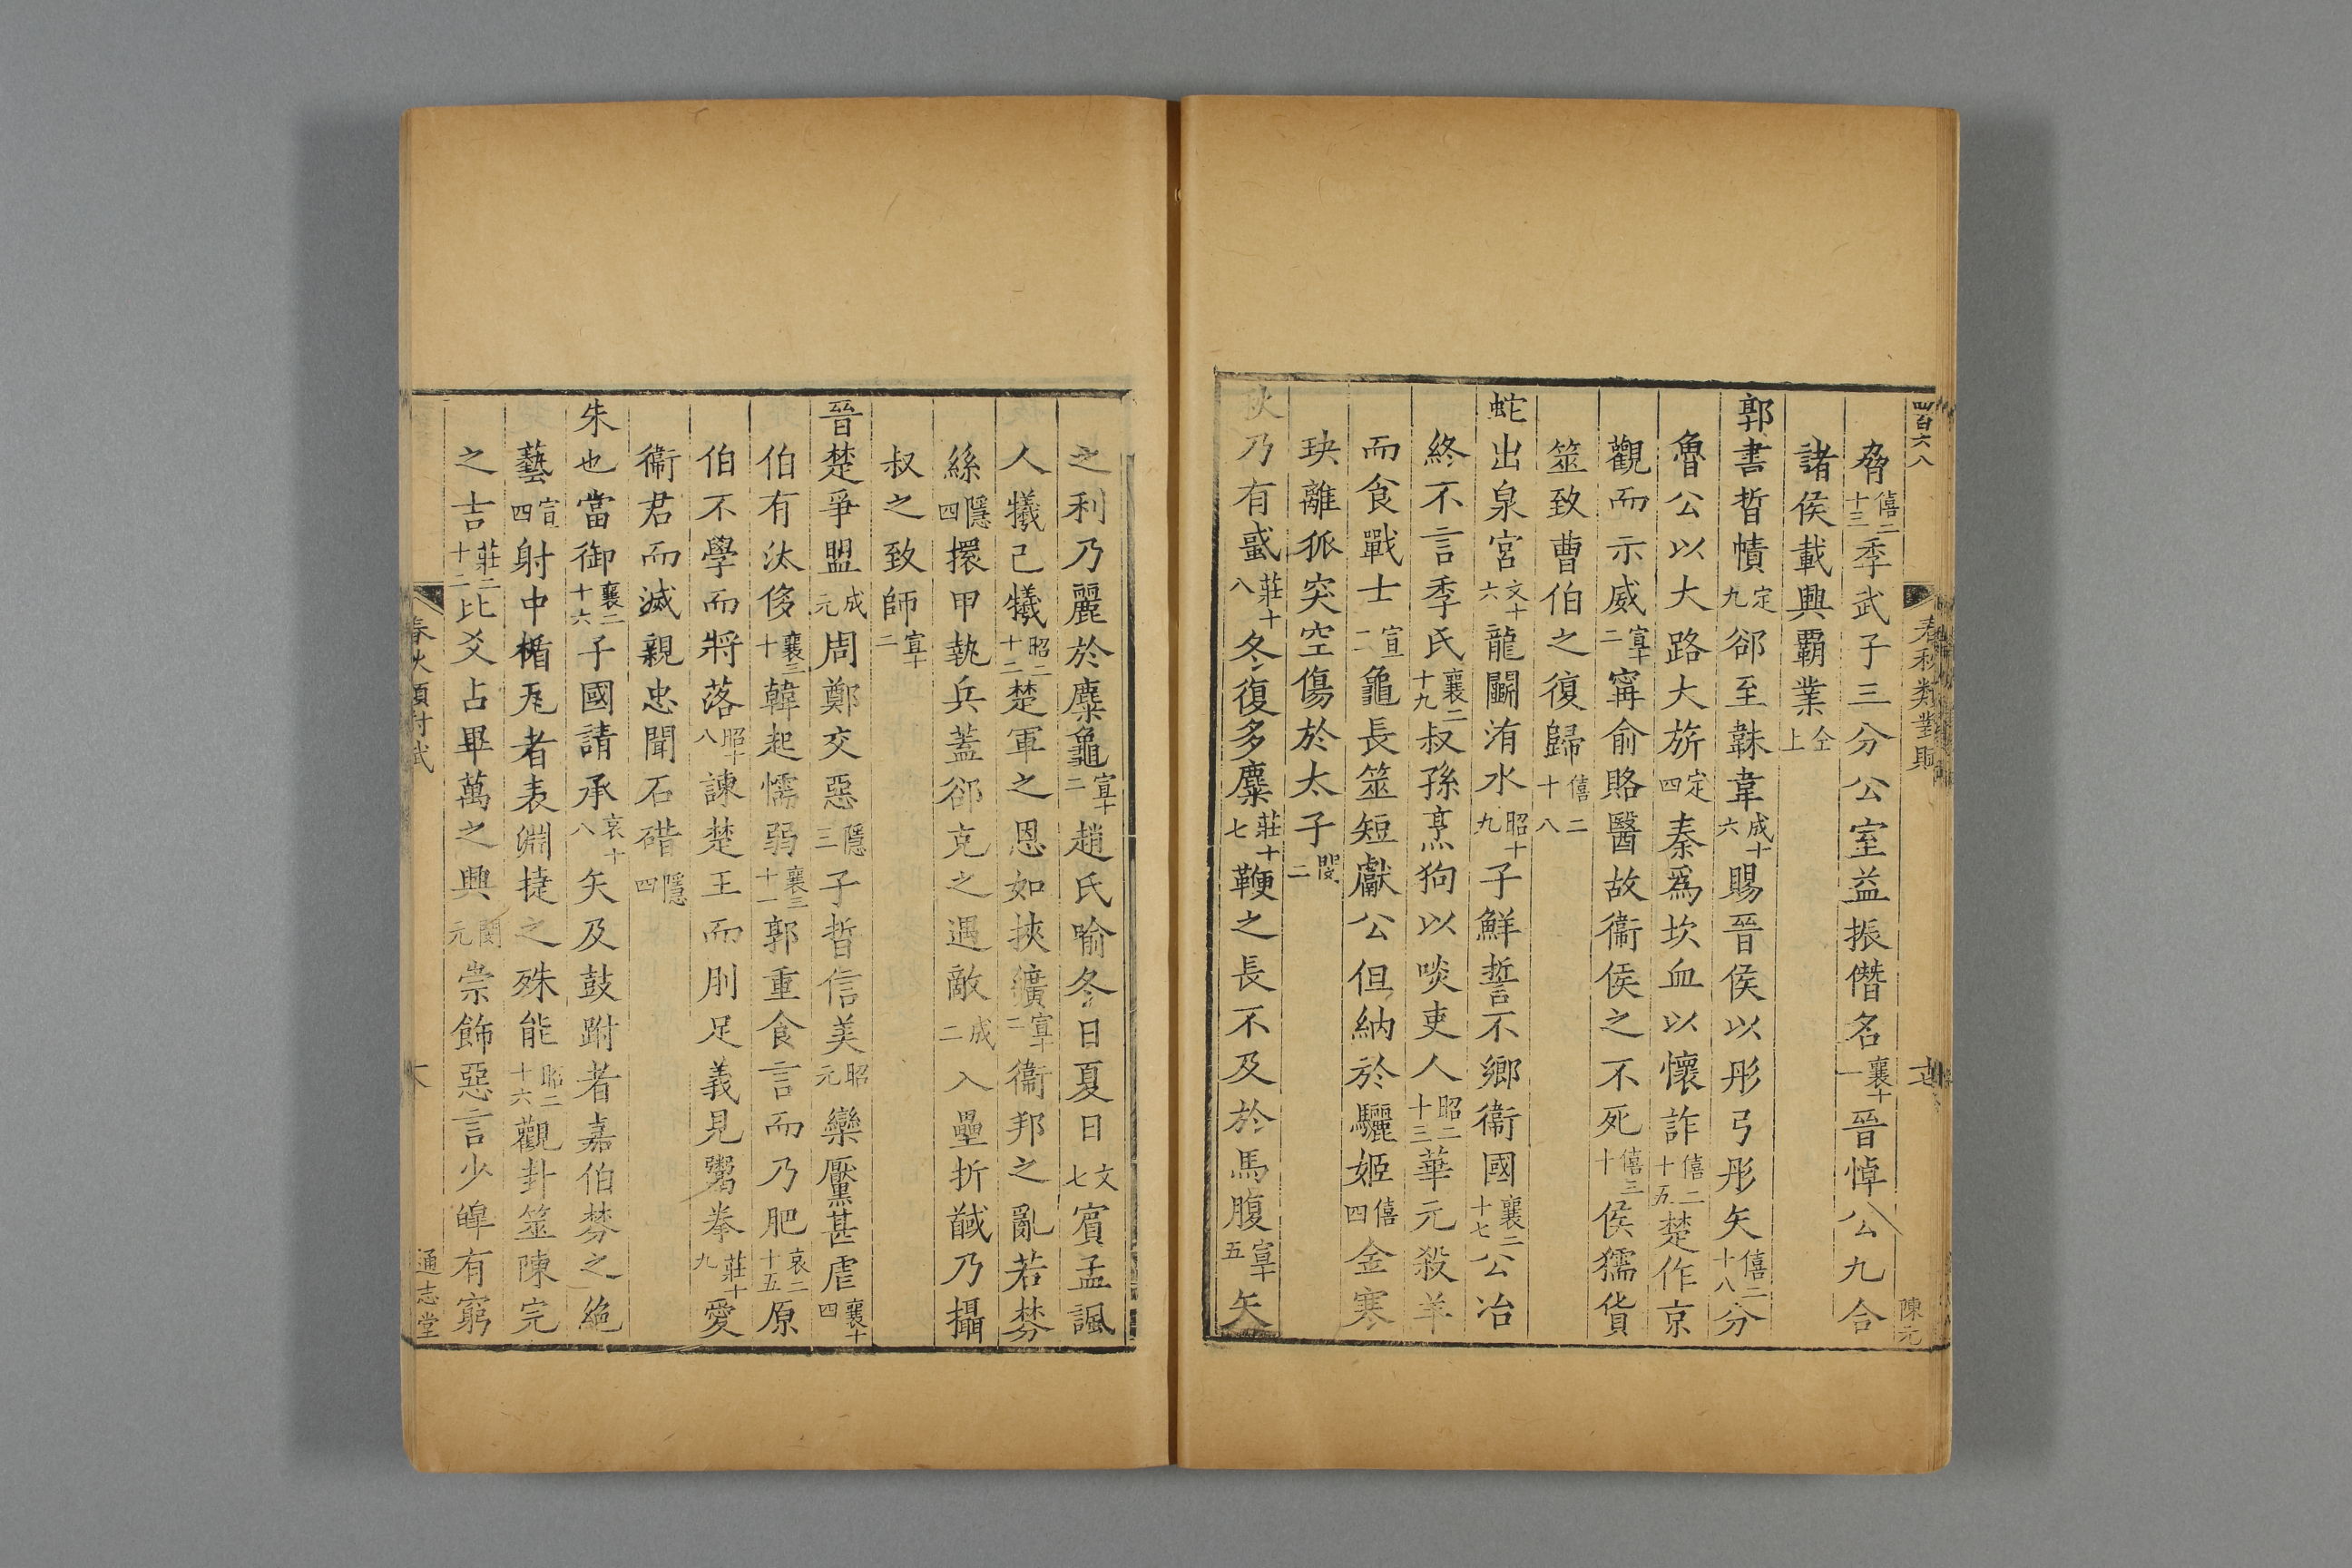 四百六八
春秋類對賦
陳元
脅僖二十三季武子三分公室益振僭名襄十一晉悼公九合
諸侯載興覇業仝上
郭書晳幘定九郤至韎韋成十六賜晉侯以彤弓彤矢僖二十八分
魯公以大路大旂定四秦爲坎血以懷詐僖二十五楚作京
觀而示威宣十二甯俞賂醫故衞侯之不死僖三十侯獳貨
筮致曹伯之復歸僖二十八
蛇出泉宮文十六龍鬭洧水昭十九子鮮誓不鄉衞國襄二十七公冶
終不言季氏襄二十九叔孫烹狗以啖吏人昭二十三華元殺羊
而食戰士宣二龜長筮短獻公但納於驪姬僖四金寒
玦離狐突空傷於太子閔二
秋乃有蜮莊十八冬復多麋莊十七鞭之長不及於馬腹宣十五矢
之利乃麗於麋龜宣十二趙氏喻冬日夏日文七賓孟諷
人犧己犧昭二十二楚軍之恩如挾纊宣十二衞邦之亂若棼
絲隱四擐甲執兵蓋郤克之遇敵成二入壘折馘乃攝
叔之致師宣十二
晉楚爭盟成元周鄭交惡隱三子晳信美昭元欒黶甚虐襄十四
伯有汰侈襄三十韓起懦弱襄三十一郭重食言而乃肥哀二十五原
伯不學而將落昭十八諫楚王而刖足義見鬻拳莊十九愛
衞君而滅親忠聞石碏隱四
朱也當御襄二十六子國請承哀十八矢及鼓跗者嘉伯棼之絶
藝宣四射中楯瓦者表淵捷之殊能昭二十六觀卦筮陳完
之吉莊二十二比爻占畢萬之興閔元崇飾惡言少皥有窮
春秋類對賦
通志堂